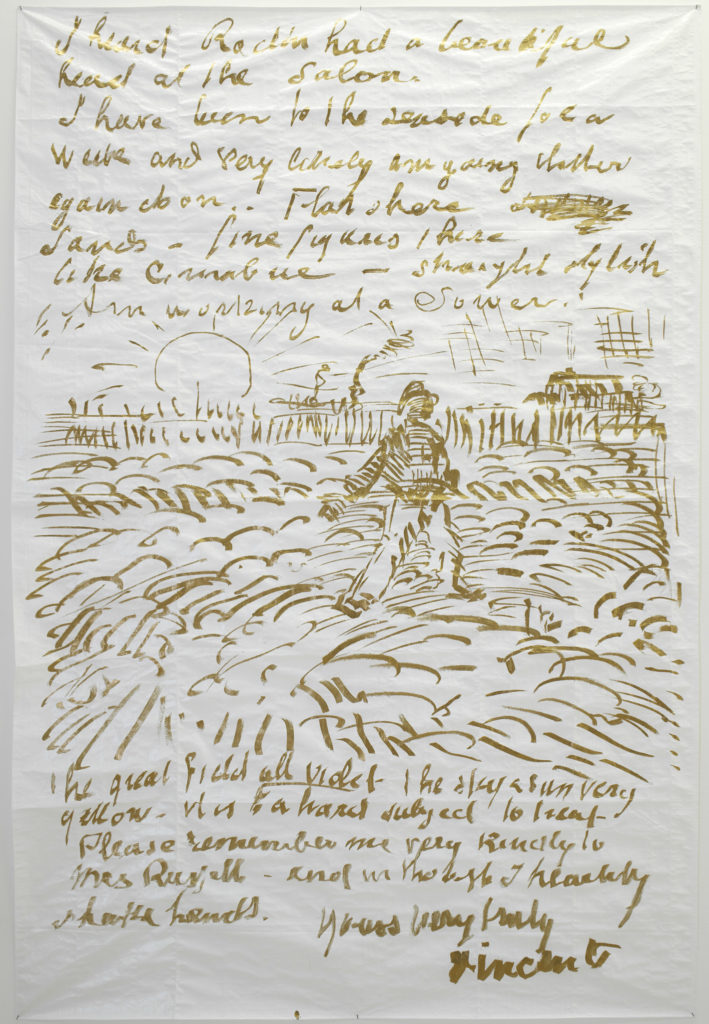 I heard Rodin had a beautiful
head at the Salon.
I have been to the seaside for a
week and very likely am going thither
again soon.. Flat shore
sands - fine figures there
like Cimabue - straight stylish
Am working at a Sower.
the great field all violet the sky & sun very
yellow. it is a hard subject to treat
Please remember me very kindly to
Mrs Russell - and in thought I heartily
shake hands.
yours very truly
Vincent